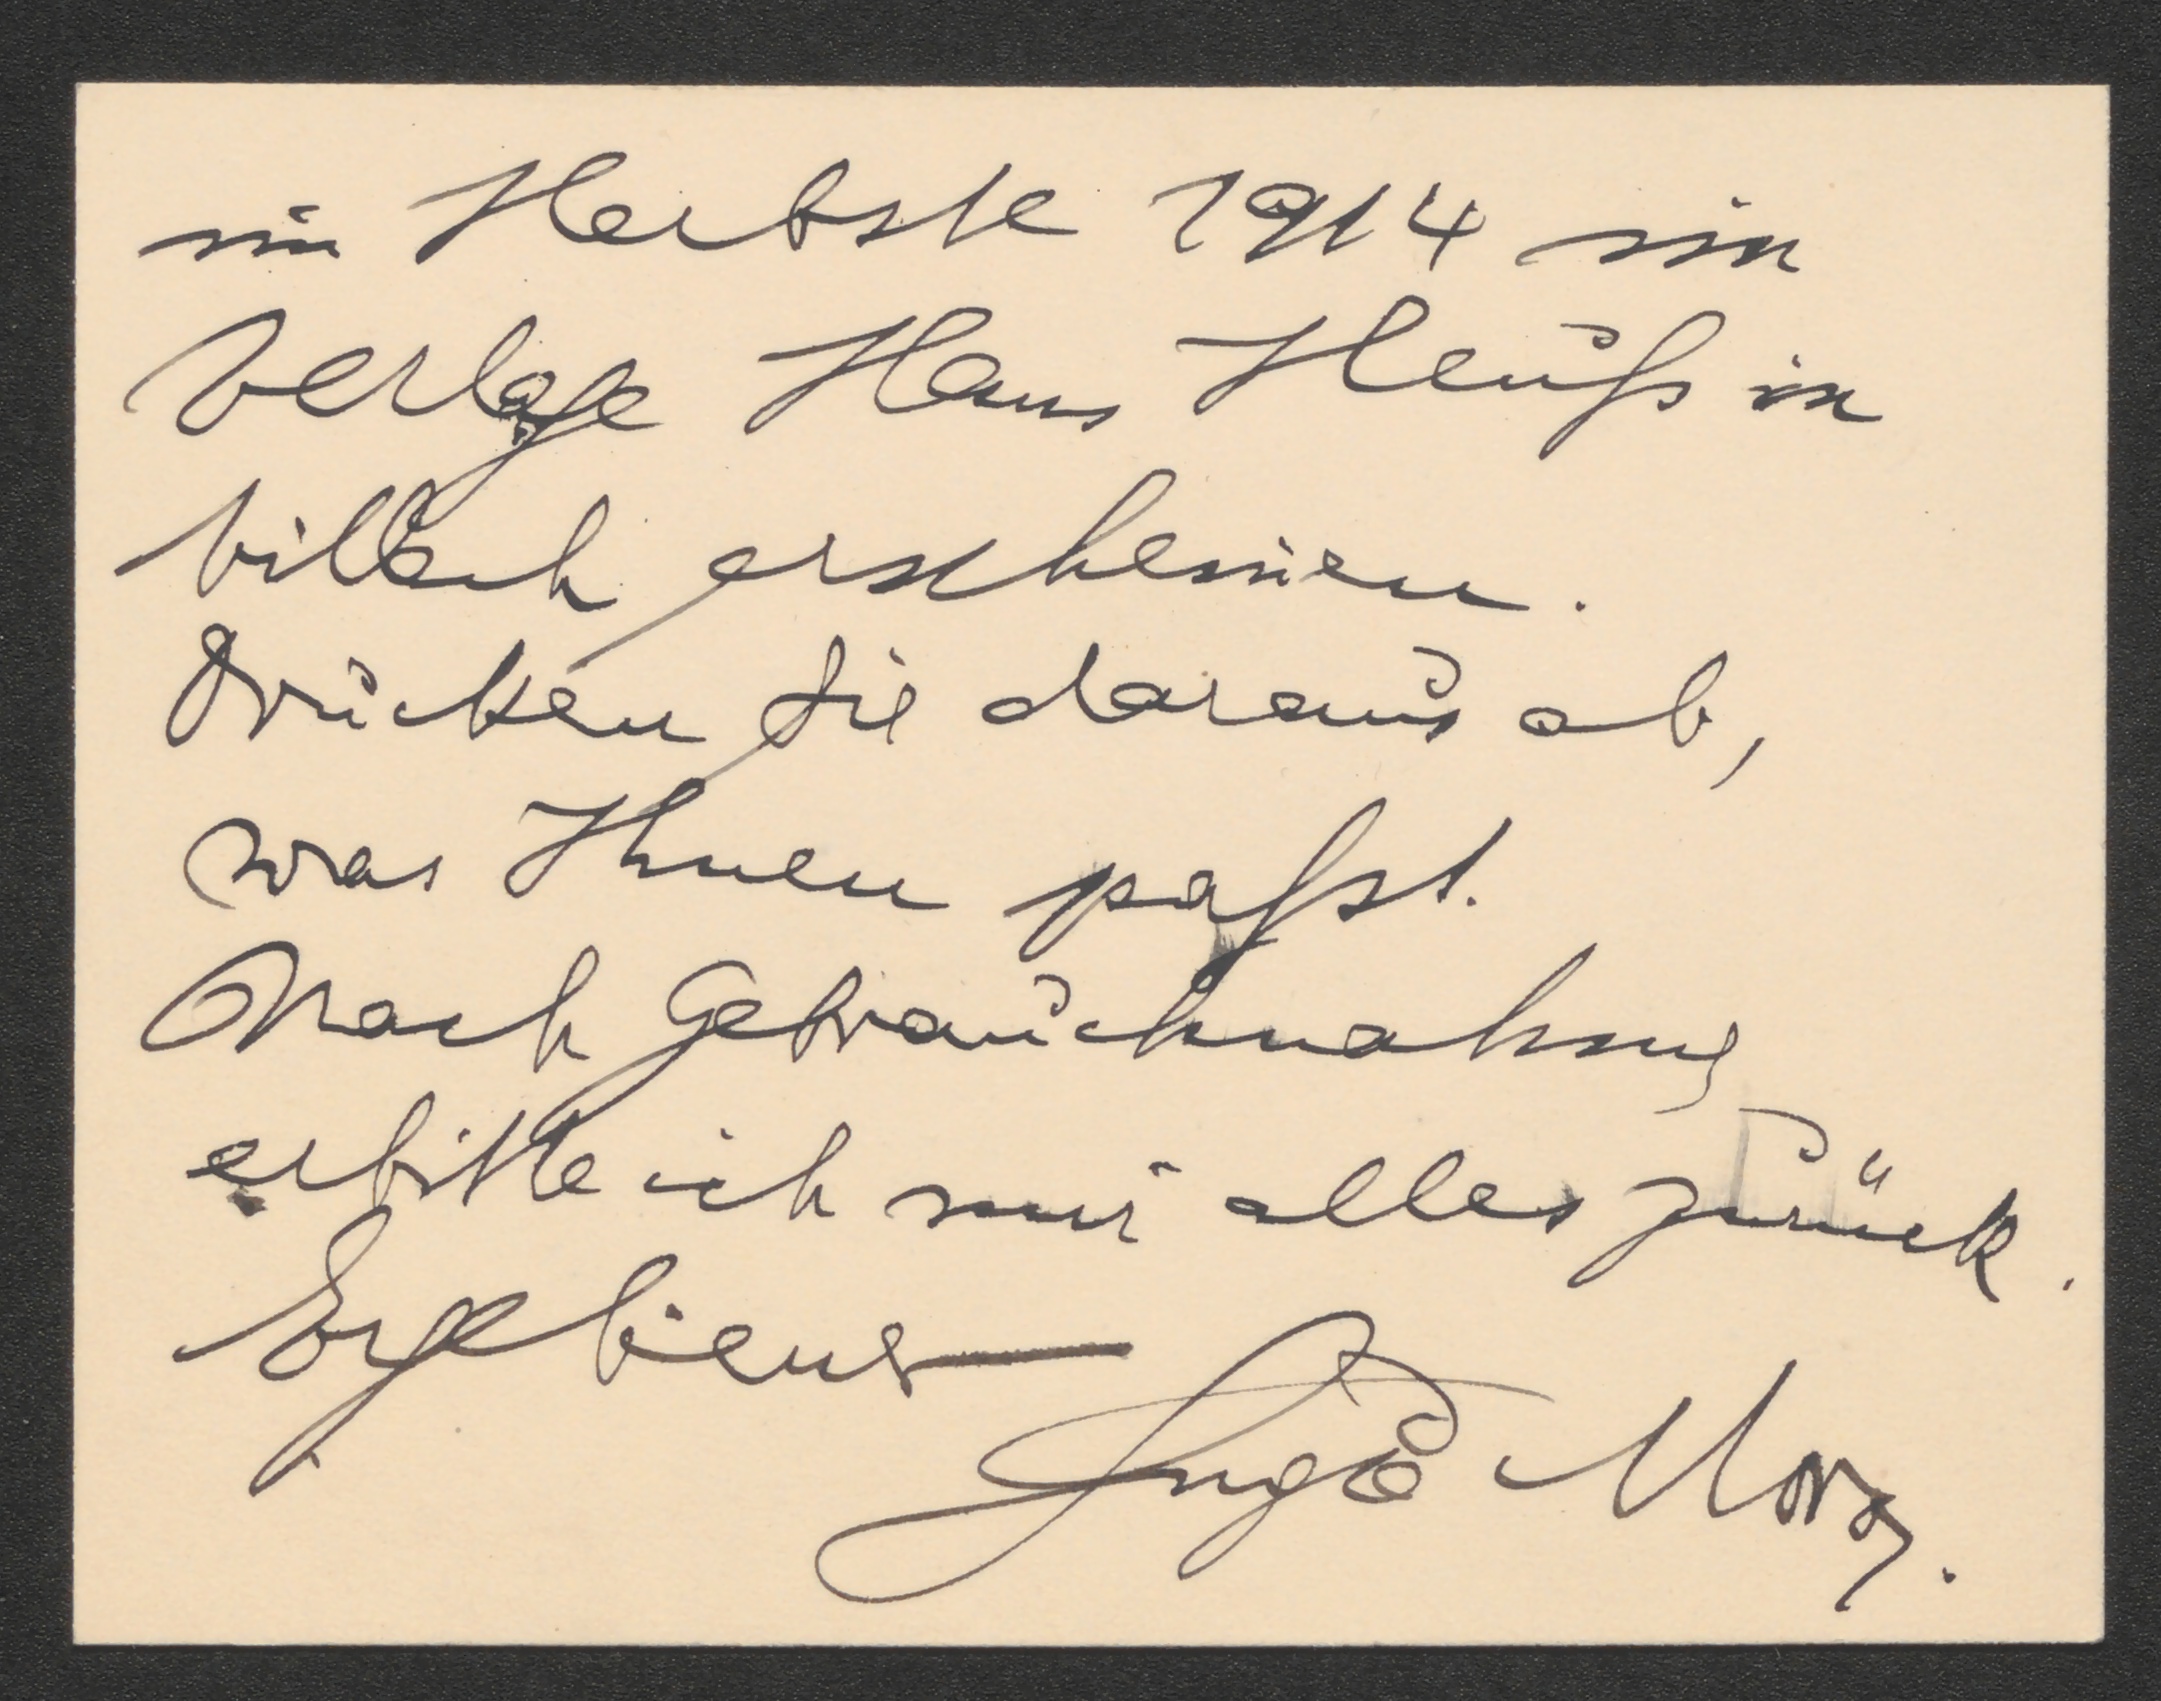 im Herbste 1914 im
Verlage Hans Heuß in
Villach erscheinen.
Drucken Sie daraus ab,
was Ihnen paßst.
Nach Gebrauchnahme
erbitte ich mir alles zurück.
Ergebenst
Hugo Moro.